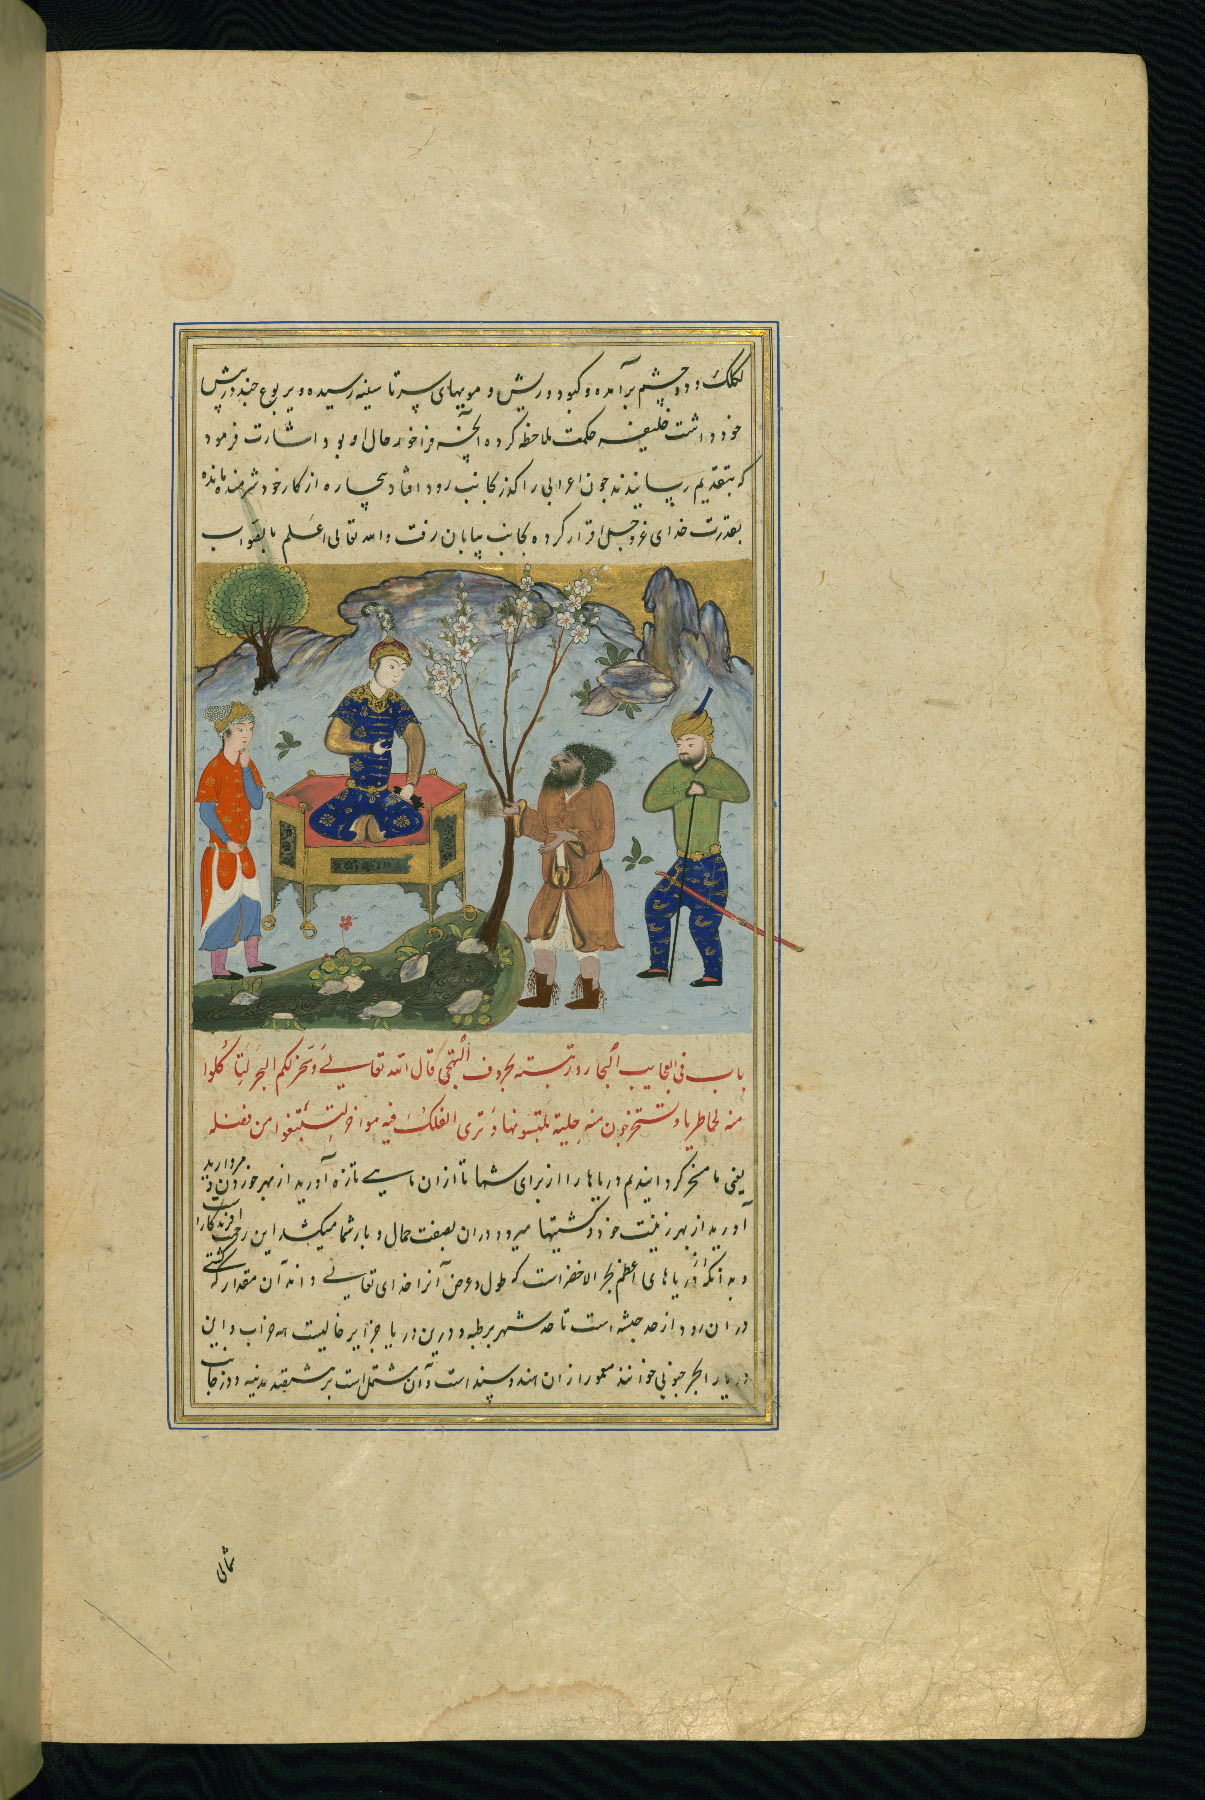 لکلک و دو چشم برآمده و کبود و ریش و مویهای سر تا سینه رسیده و یربوع چند در پیش
خود داشت خلیفه حکمت ملاحظه کرده آنچه فراخور حال او بود اشارت فرمود
که بتقدیم رسانیدند جون اعرابی را کذر کانب رود افتاد بیچاره از کار خود شرمنده مانده
بقدرت خدای عز وجل اقرار کرده بجانب بیابان رفت والله تعالی اعلم بالصواب
باب فی العجایب البحار و رتبته بحروف التهجی قال الله تعالی وسخر لکم البحر لتاکلوا
منه لحما طریا و تستخرجون منه حلیة تلبسونها و تری الفلک فیه مواخر لتبتغوا من فضله
یعنی ما مسخر کردانیدیم دریاها را از برای شما تا از ان ماهی تازه آورید از بهر خوردن و مروارید
آورید از بهر زینت خود و کشتیها میرود در ان بصفت حمال و بار شما میکشد این رحمت
و بدانکه از دریاهای اعظم بحر الاخضر است که طول و عرض آنرا خدای تعالی داند آن مقدار که کشتی
در ان رود از حد حبشه است تا حد شهر برطبه و درین دریا جزایر خالیست همه خراب و این
دریا را بحر جنوبی خوانند معمور از ان هند و سند است و آن مشتمل است بر مدینه و در جانب
شمالی